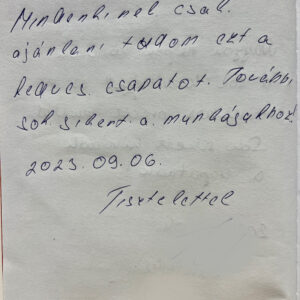 Mindenkinek csak
ajánlani tudom ezt a
kedves csapatot. További
sok sikert a munkájukhoz!
2023.09.06.
Tisztelettel